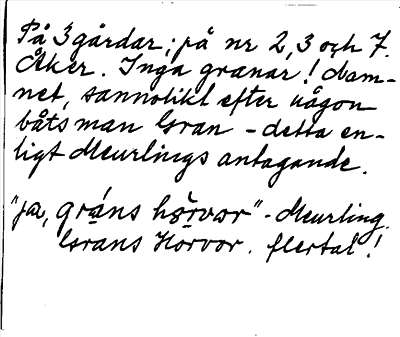 På 3 gårdar; på nr 2, 3 och 7.
Åker. Inga granar! Nam-
net, sannolikt efter någon
båtsman Gran - detta en-
ligt Meurlings antagande.
"pa, gráns hǫrvər" - Meurling.
Grans Horvor. flertal!